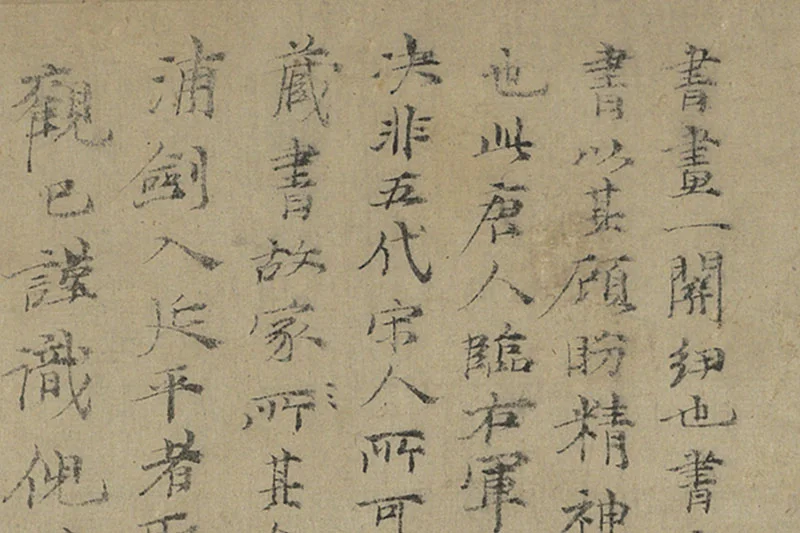 書畫一關紐也書
書以其顧盼精神
也此唐人臨右軍
决非五代宋人所可
藏書故家所其
浦劍入延平者
觀已謹識倪